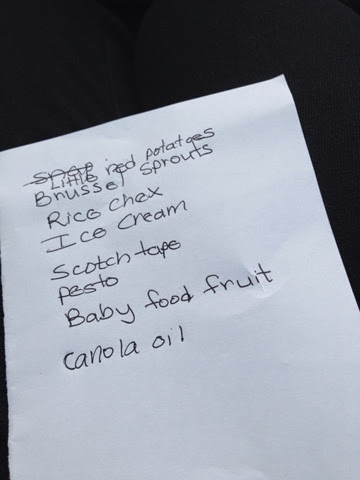 Little red potatoes
Brussel sprouts
Rice Chex
Ice Cream
Scotch tape
pesto
Baby food fruit
canola oil